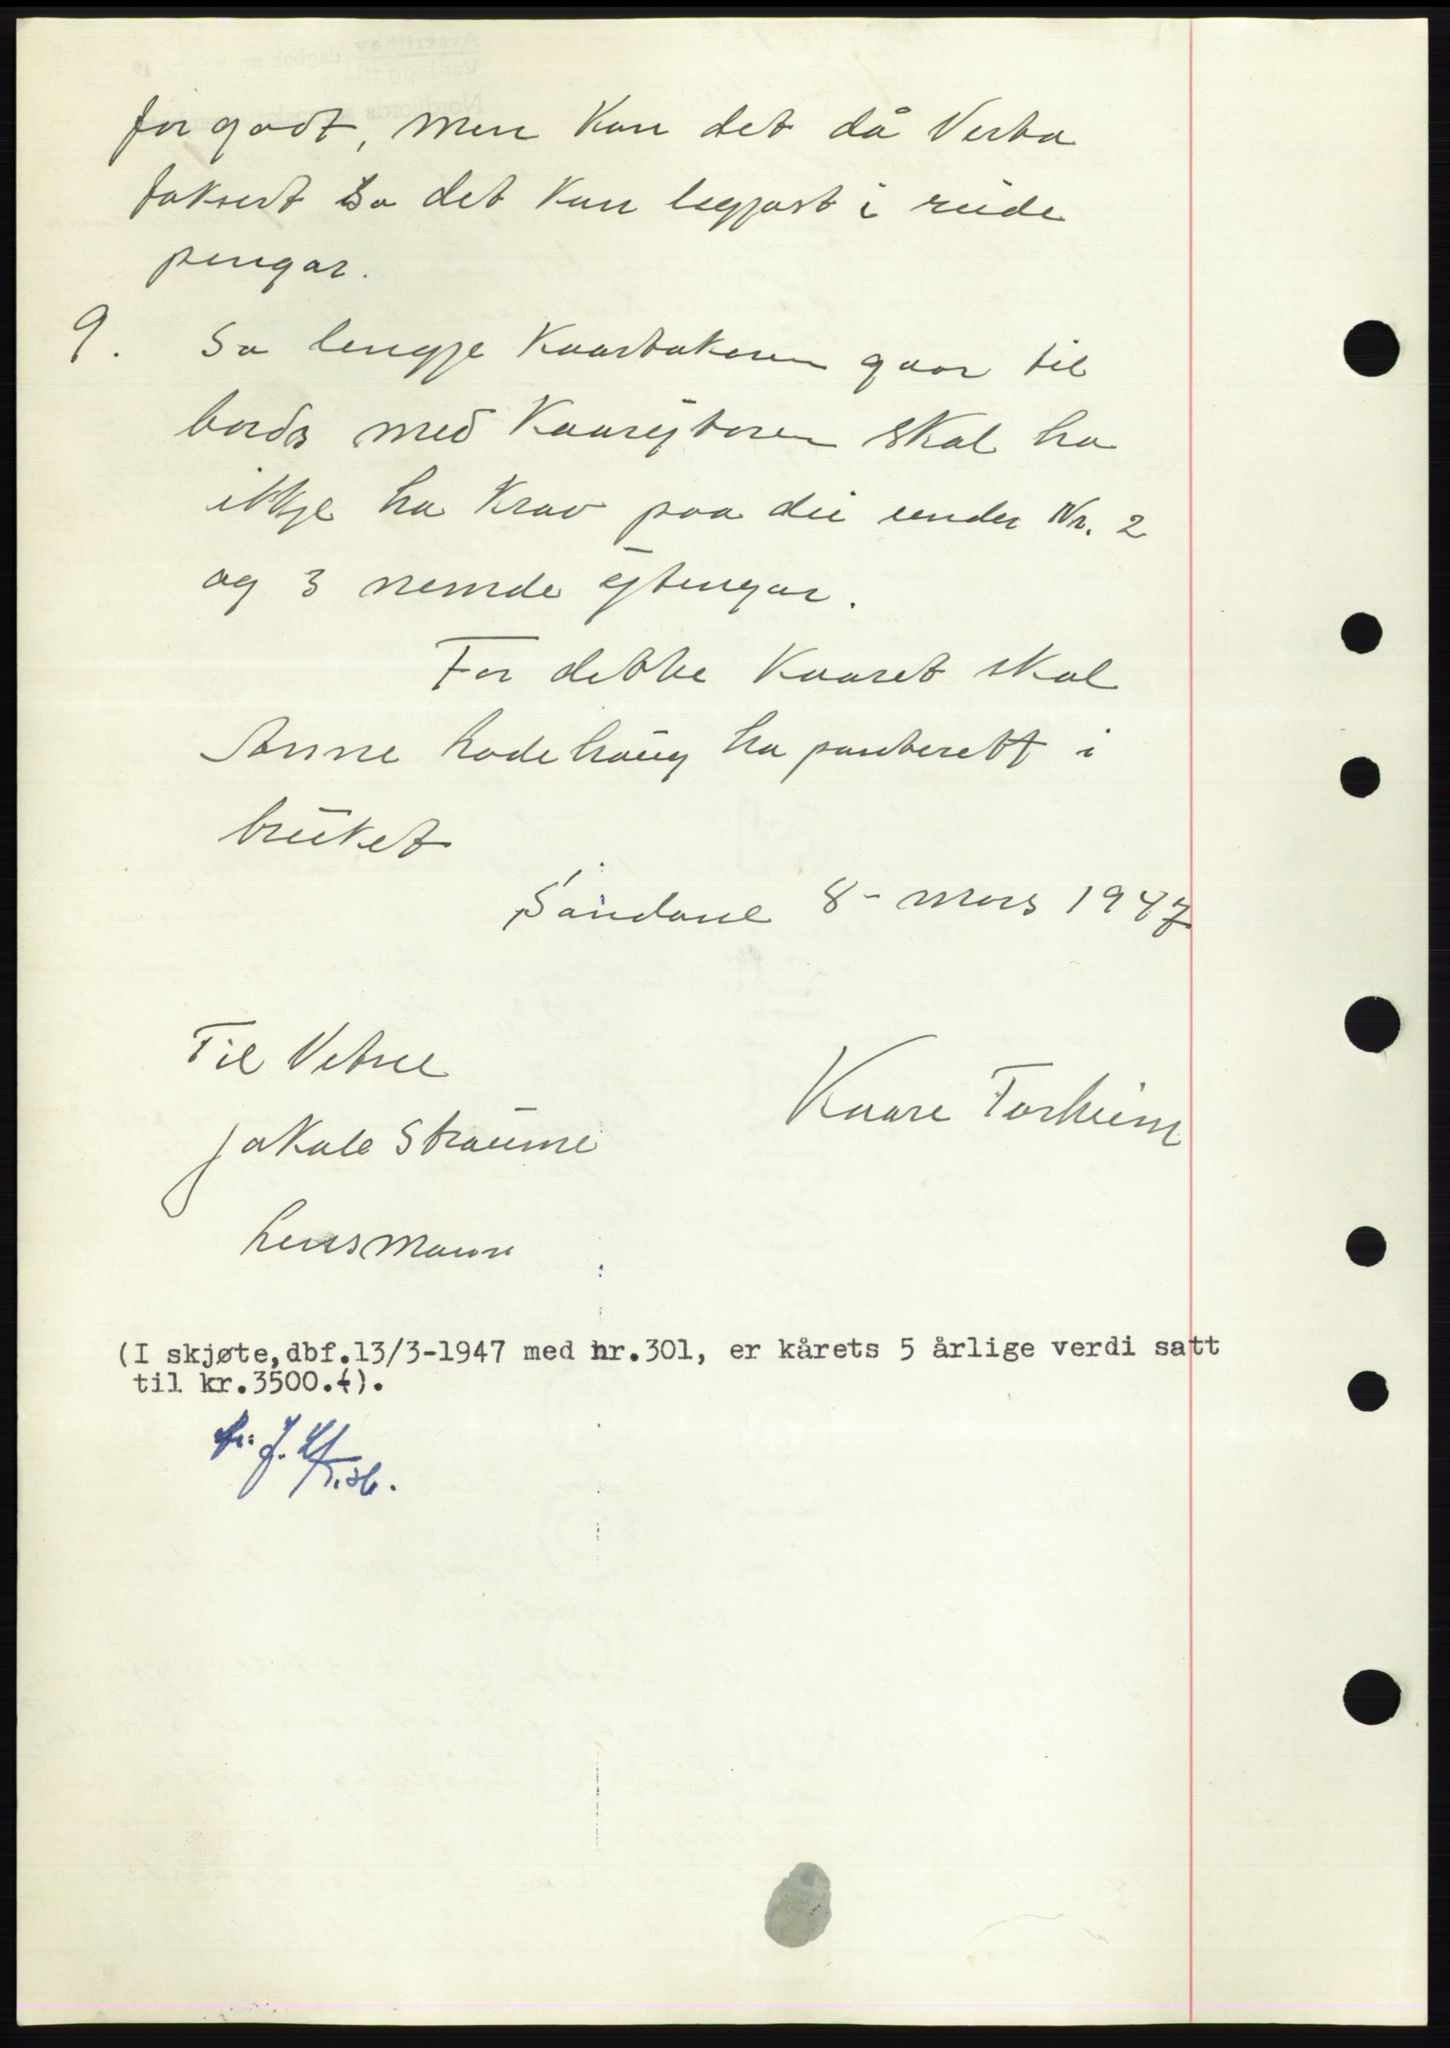 for godt, men kan det då Verta
taksert so det kan leggjast i reide
pengar.
9. So lengje Kaartakaren gaar til
bords med Kaarytaren skal ha
ikkje ha Krav paa dei under Nr. 2
og 3 nemde ytingar.
For dette Kaaret skal
Anne hode haug ha panterett i
bruket
Sandane 8 - mars 1947
Til Vitne
Kaare Forheim
Jakob Straume
lensmann
(I skjøte, dbf.13/3-1947 med nr.301, er kårets 5 årlige verdi satt
til kr.3500.-).